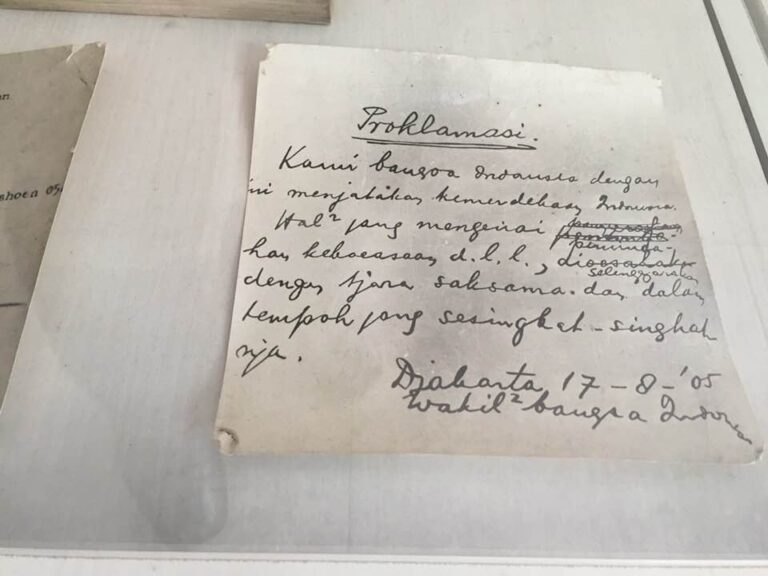 Proklamasi.
Kami bangsa Indonesia dengan
ini menjatakan kemerdekaan Indonesia.
Hal² jang mengenai
peminda-
han kekoeasaan d.l.l.,
selenggarakan
dengan tjara saksama dan dalam
tempoh jang sesingkat-singkat
nja.
Djakarta 17-8-'05
Wakil² bangsa Indonesia
shoen 05